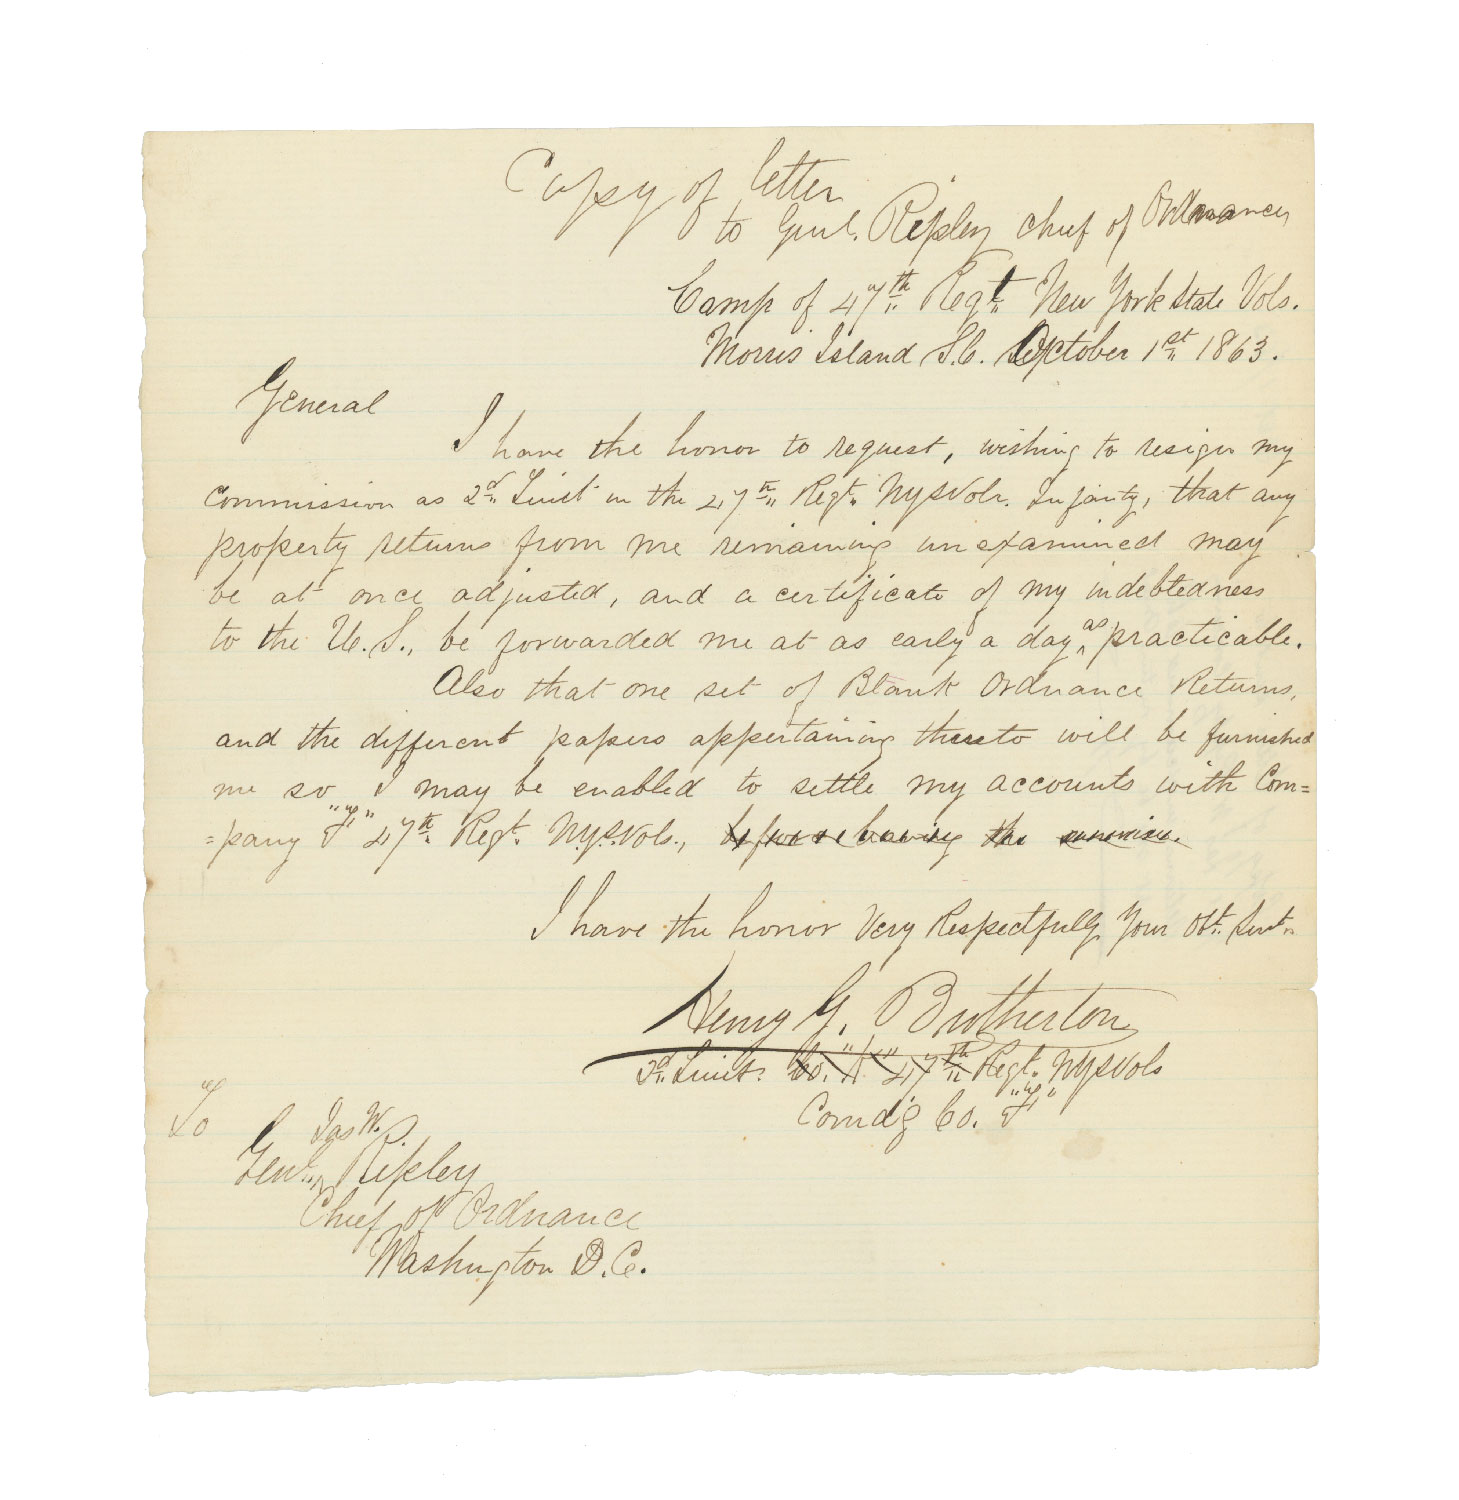 Copy of letter
to Genl. Ripley Chief of Ordnance,
Camp of 47th Regt. New York State Vols.
Morris Island S.C. October 1st 1863.
General
I have the honor to request, wishing to resign my
Commission as 2d Lieut in the 47th Regt. NYSVols. Infanty, that any
property returns from me remaining unexamined may
be at once adjusted, and a certificate of my indebtedness
to the U.S., be forwarded me at as early a day as practicable.
Also that one set of Blank Ordnance Returns,
and the different papers appertaining thereto will be furnished
me so I may be enabled to settle my accounts with Com=
=pany "F" 47th Regt. N.Y.S.Vols., before leaving the service.
I have the honor Very Respectfully Your Obt. Servt.
Henry G. Brotherton
2d Lieut. Co. "A" 47th Regt. NYSVols
Comd'g Co. "F"
To
Jas W.
Genl. Ripley
Chief of Ordnance
Washington D.C.